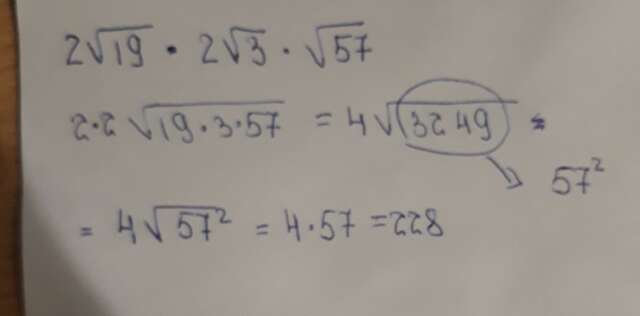 2√19 · 2√3 · √57
2·2 √19·3·57 = 4√3249 =
57²
= 4√57² = 4·57 = 228